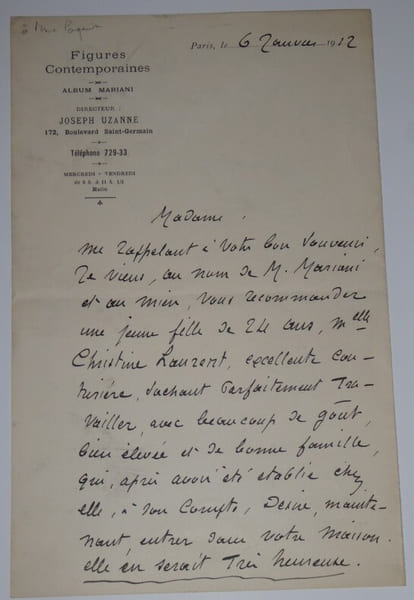 à Mme Paquin
Paris, le 6 Janvier 1912
Figures
Contemporaines
ALBUM MARIANI
DIRECTEUR :
JOSEPH UZANNE
172, Boulevard Saint-Germain
Téléphone 729-33
MERCREDI - VENDREDI
de 9 h. à 11 h. 1/2
Matin
Madame,
me rappelant à votre bon souvenir,
Je viens, au nom de M. Mariani
et au mien, vous recommander
une jeune fille de 24 ans, Melle
Christine Laurent, excellente cou-
turière, sachant parfaitement tra-
vailler, avec beaucoup de goût,
bien élevée et de bonne famille,
qui, après avoir été établie chez
elle, à son compte, désire, mainte-
nant, entrer dans votre maison.
elle en serait très heureuse.